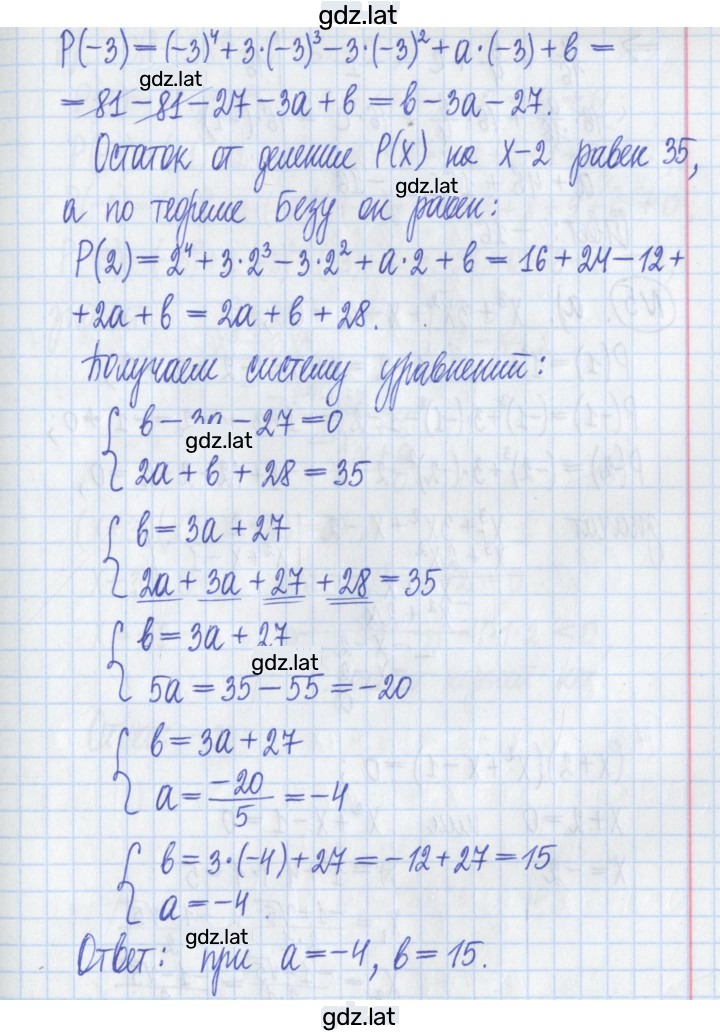 gdz.lat
P(-3) = (-3)⁴ + 3·(-3)³ - 3·(-3)² + a·(-3) + b =
gdz.lat
= 81 - 81 - 27 - 3a + b = b - 3a - 27.
Остаток от деление P(x) на x-2 равен 35,
gdz.lat
а по теореме Безу он равен:
P(2) = 2⁴ + 3·2³ - 3·2² + a·2 + b = 16 + 24 - 12 +
+ 2a + b = 2a + b + 28.
Получаем систему уравнений:
{ b - 3a - 27 = 0
gdz.lat
2a + b + 28 = 35
{ b = 3a + 27
2a + 3a + 27 + 28 = 35
{ b = 3a + 27
gdz.lat
5a = 35 - 55 = -20
{ b = 3a + 27
a = -20/5 = -4
{ b = 3·(-4) + 27 = -12 + 27 = 15
a = -4.
gdz.lat
Ответ: при a = -4, b = 15.
gdz.lat